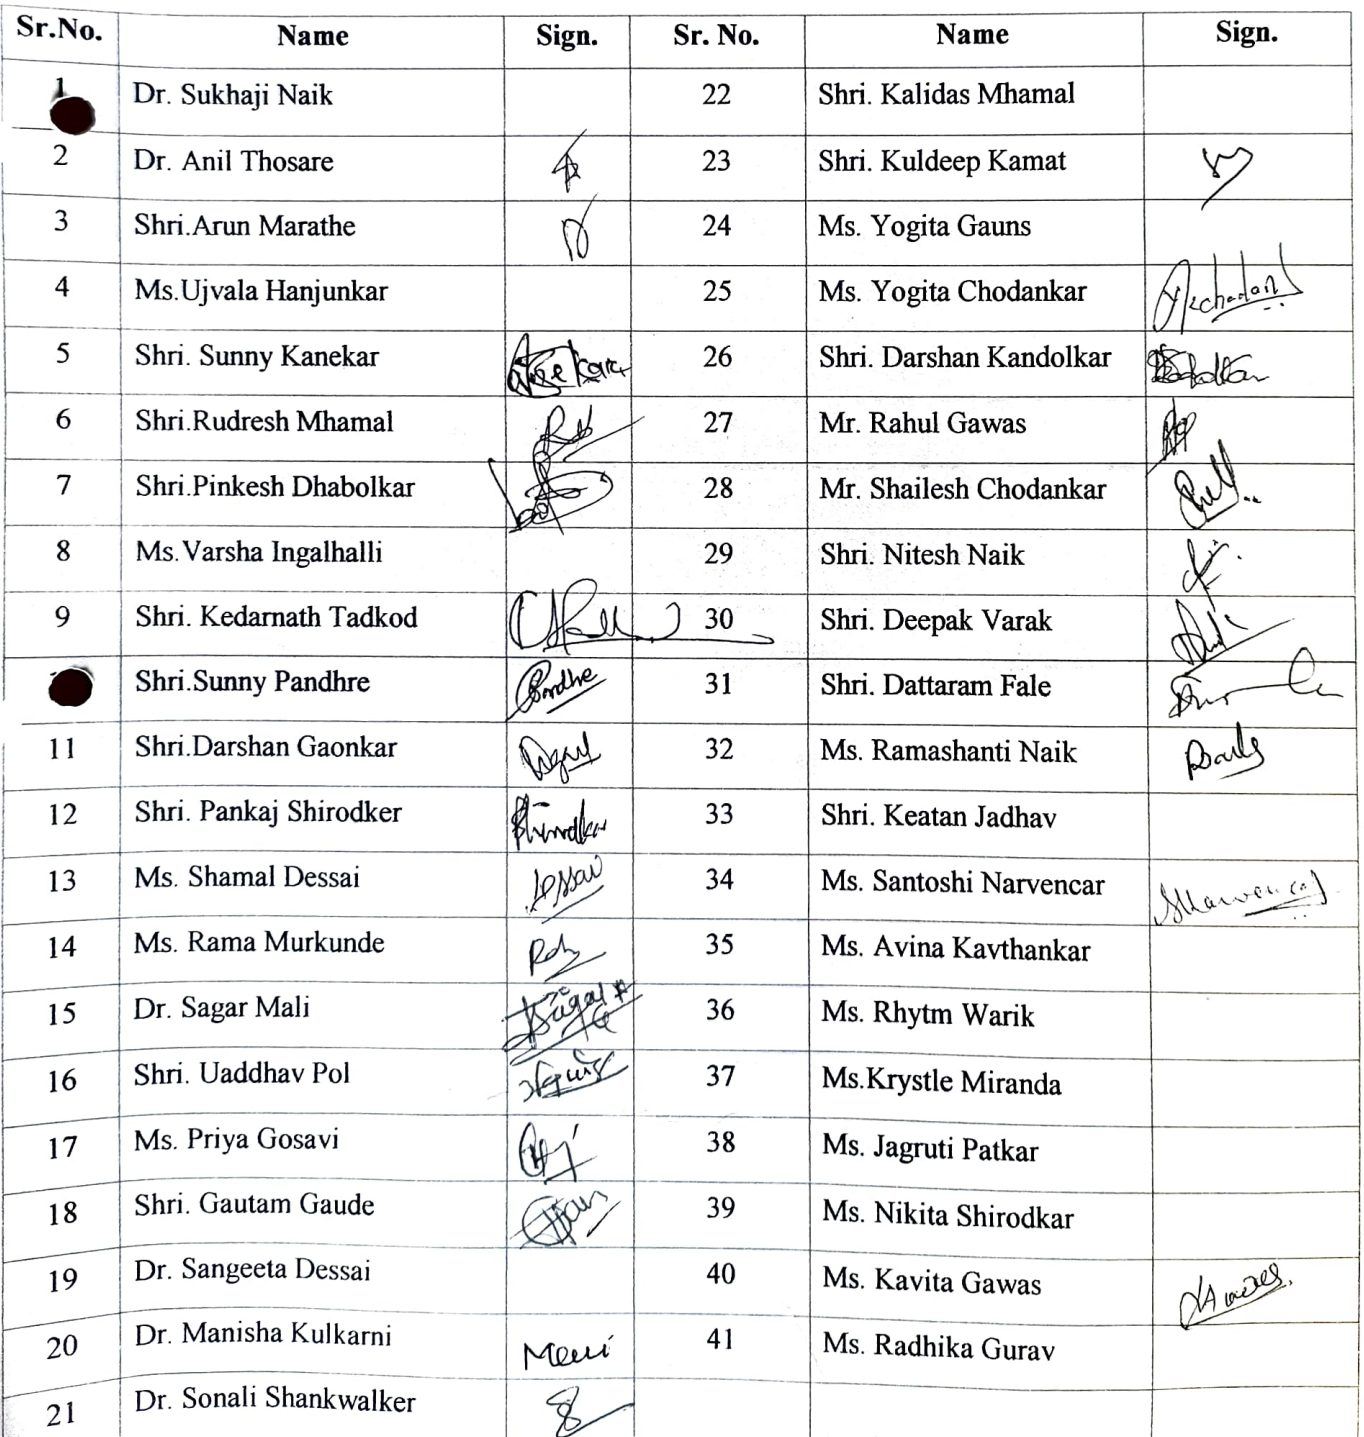 Sr.No. Name Sign. Sr. No. Name Sign.
1 Dr. Sukhaji Naik 22 Shri. Kalidas Mhamal
2 Dr. Anil Thosare 23 Shri. Kuldeep Kamat
3 Shri.Arun Marathe 24 Ms. Yogita Gauns
4 Ms.Ujvala Hanjunkar 25 Ms. Yogita Chodankar
5 Shri. Sunny Kanekar 26 Shri. Darshan Kandolkar
6 Shri.Rudresh Mhamal 27 Mr. Rahul Gawas
7 Shri.Pinkesh Dhabolkar 28 Mr. Shailesh Chodankar
8 Ms.Varsha Ingalhalli 29 Shri. Nitesh Naik
9 Shri. Kedarnath Tadkod 30 Shri. Deepak Varak
Shri.Sunny Pandhre 31 Shri. Dattaram Fale
11 Shri.Darshan Gaonkar 32 Ms. Ramashanti Naik
12 Shri. Pankaj Shirodker 33 Shri. Keatan Jadhav
13 Ms. Shamal Dessai 34 Ms. Santoshi Narvencar
14 Ms. Rama Murkunde 35 Ms. Avina Kavthankar
15 Dr. Sagar Mali 36 Ms. Rhytm Warik
16 Shri. Uaddhav Pol 37 Ms.Krystle Miranda
17 Ms. Priya Gosavi 38 Ms. Jagruti Patkar
18 Shri. Gautam Gaude 39 Ms. Nikita Shirodkar
19 Dr. Sangeeta Dessai 40 Ms. Kavita Gawas
20 Dr. Manisha Kulkarni 41 Ms. Radhika Gurav
21 Dr. Sonali Shankwalker